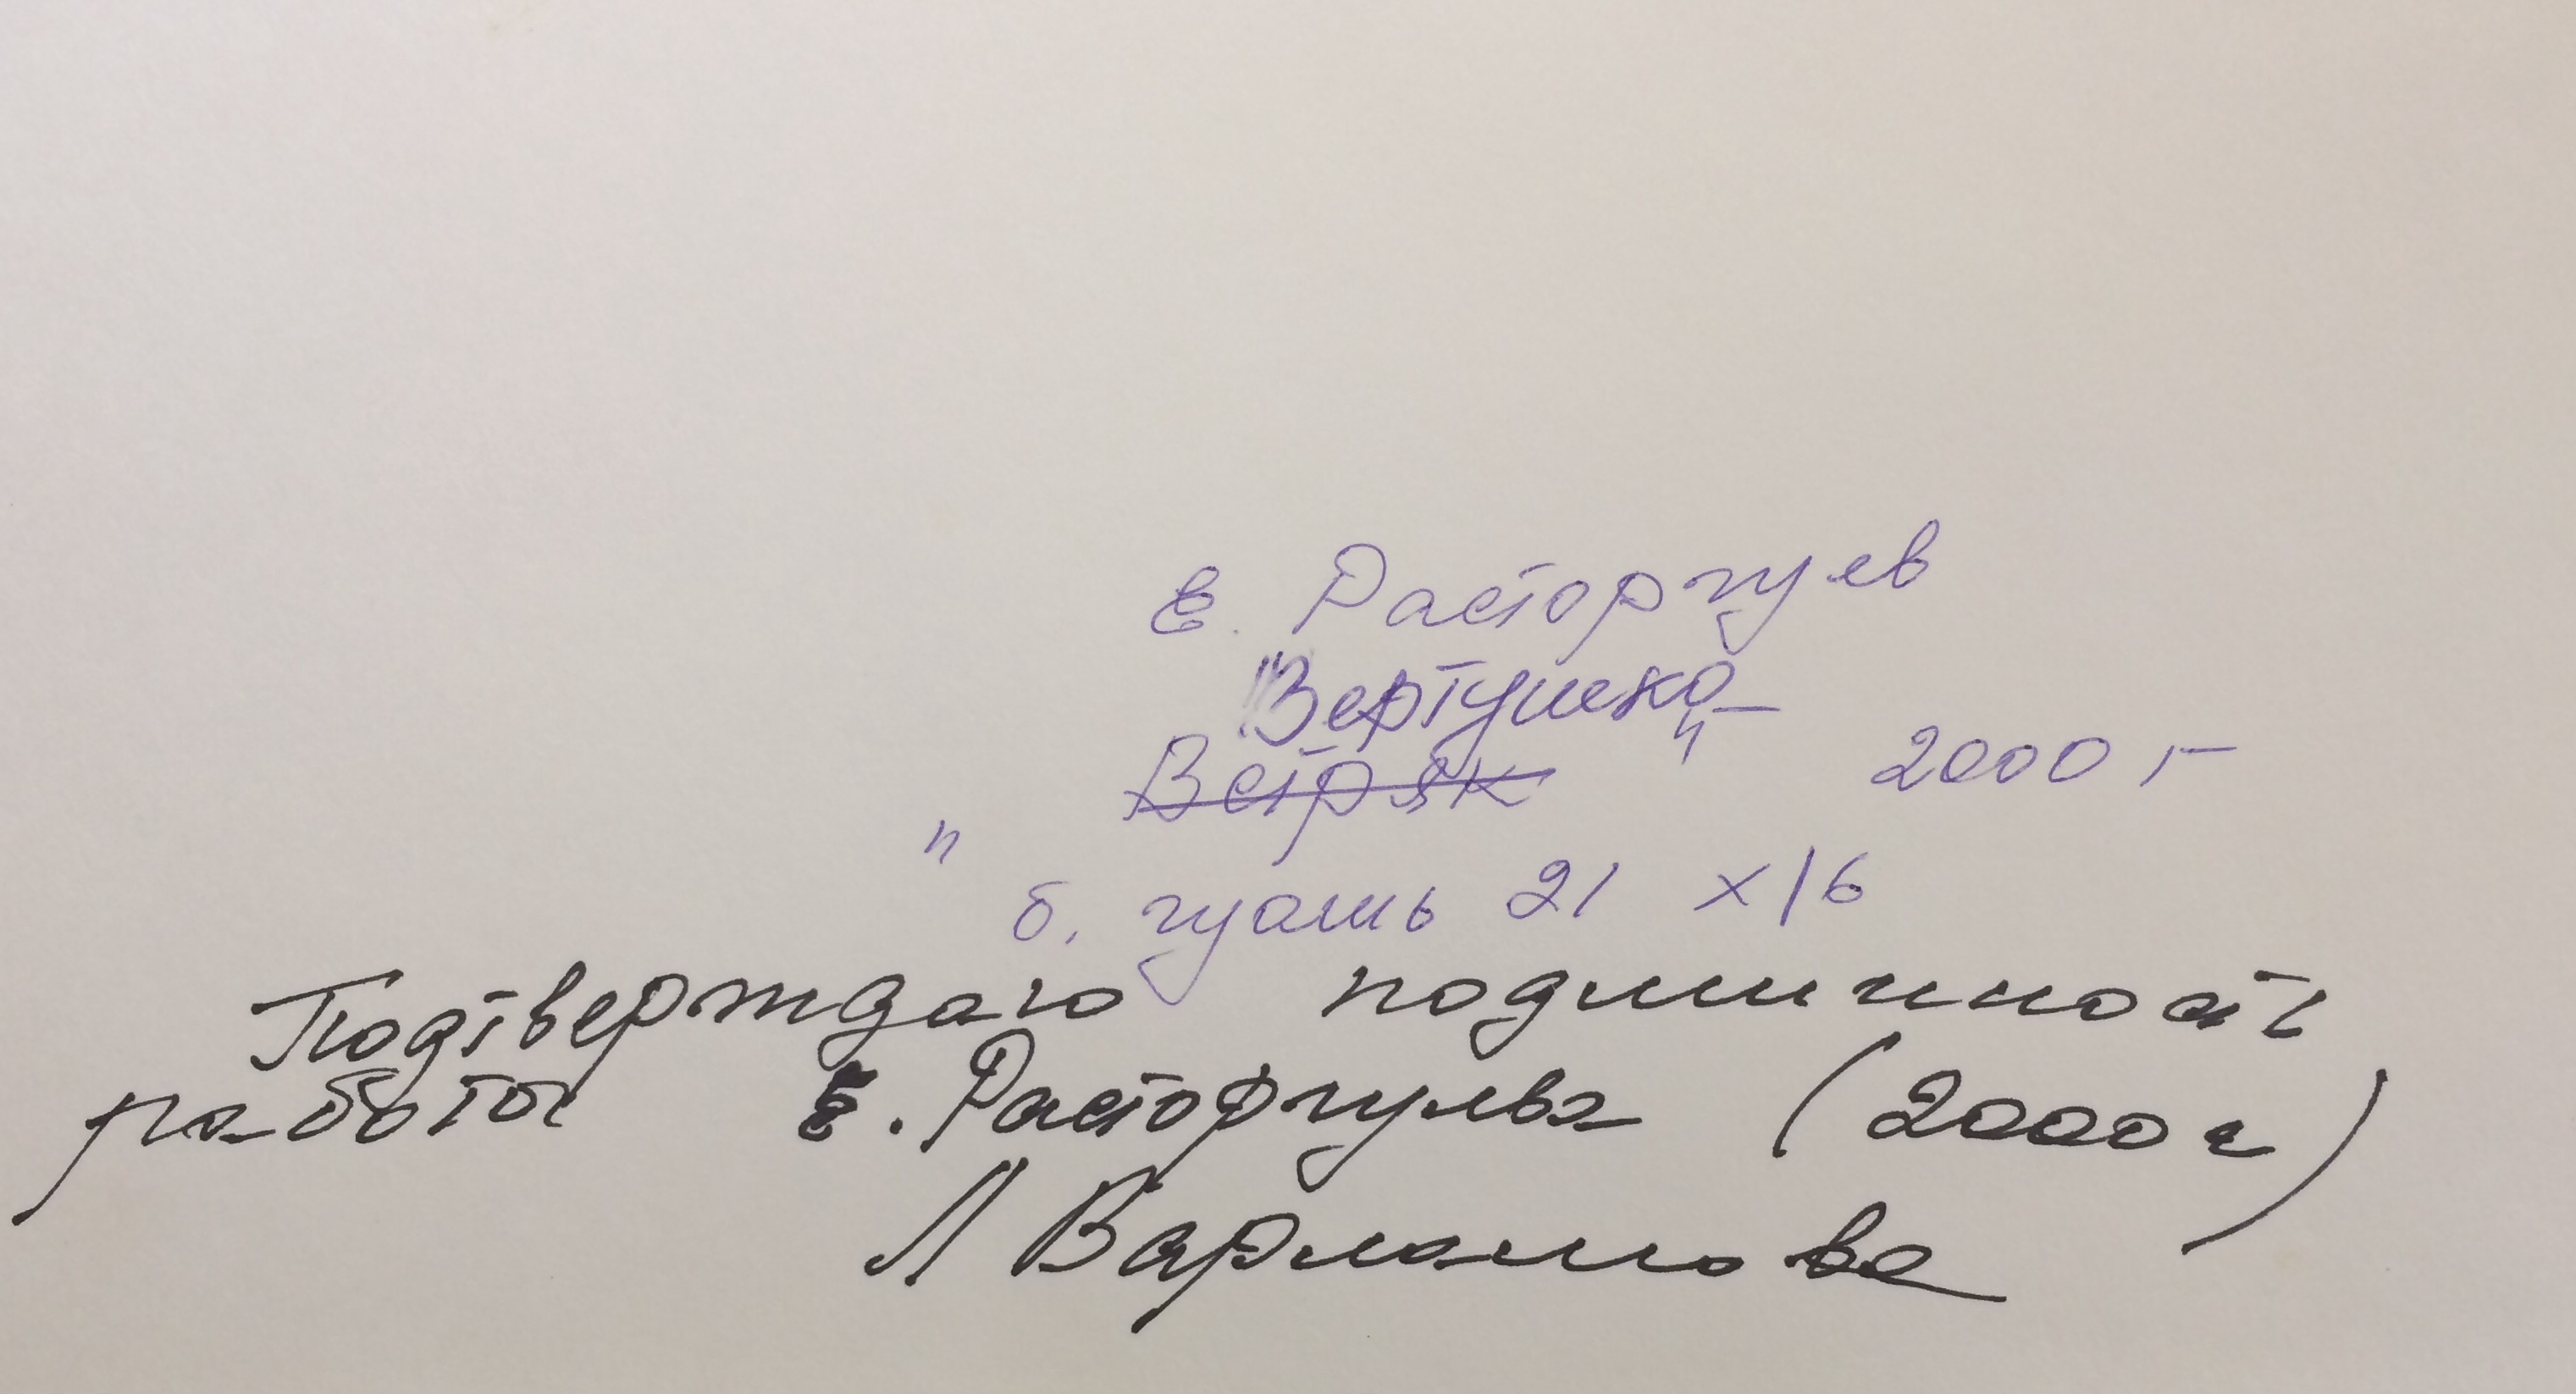 Е. Расторгуев
"Вертушка"
Ветряк 2000 г
"
б. гуашь 21 х 16
Подтверждаю подлинность
работы Е. Расторгуева (2000 г)
Л Варламова